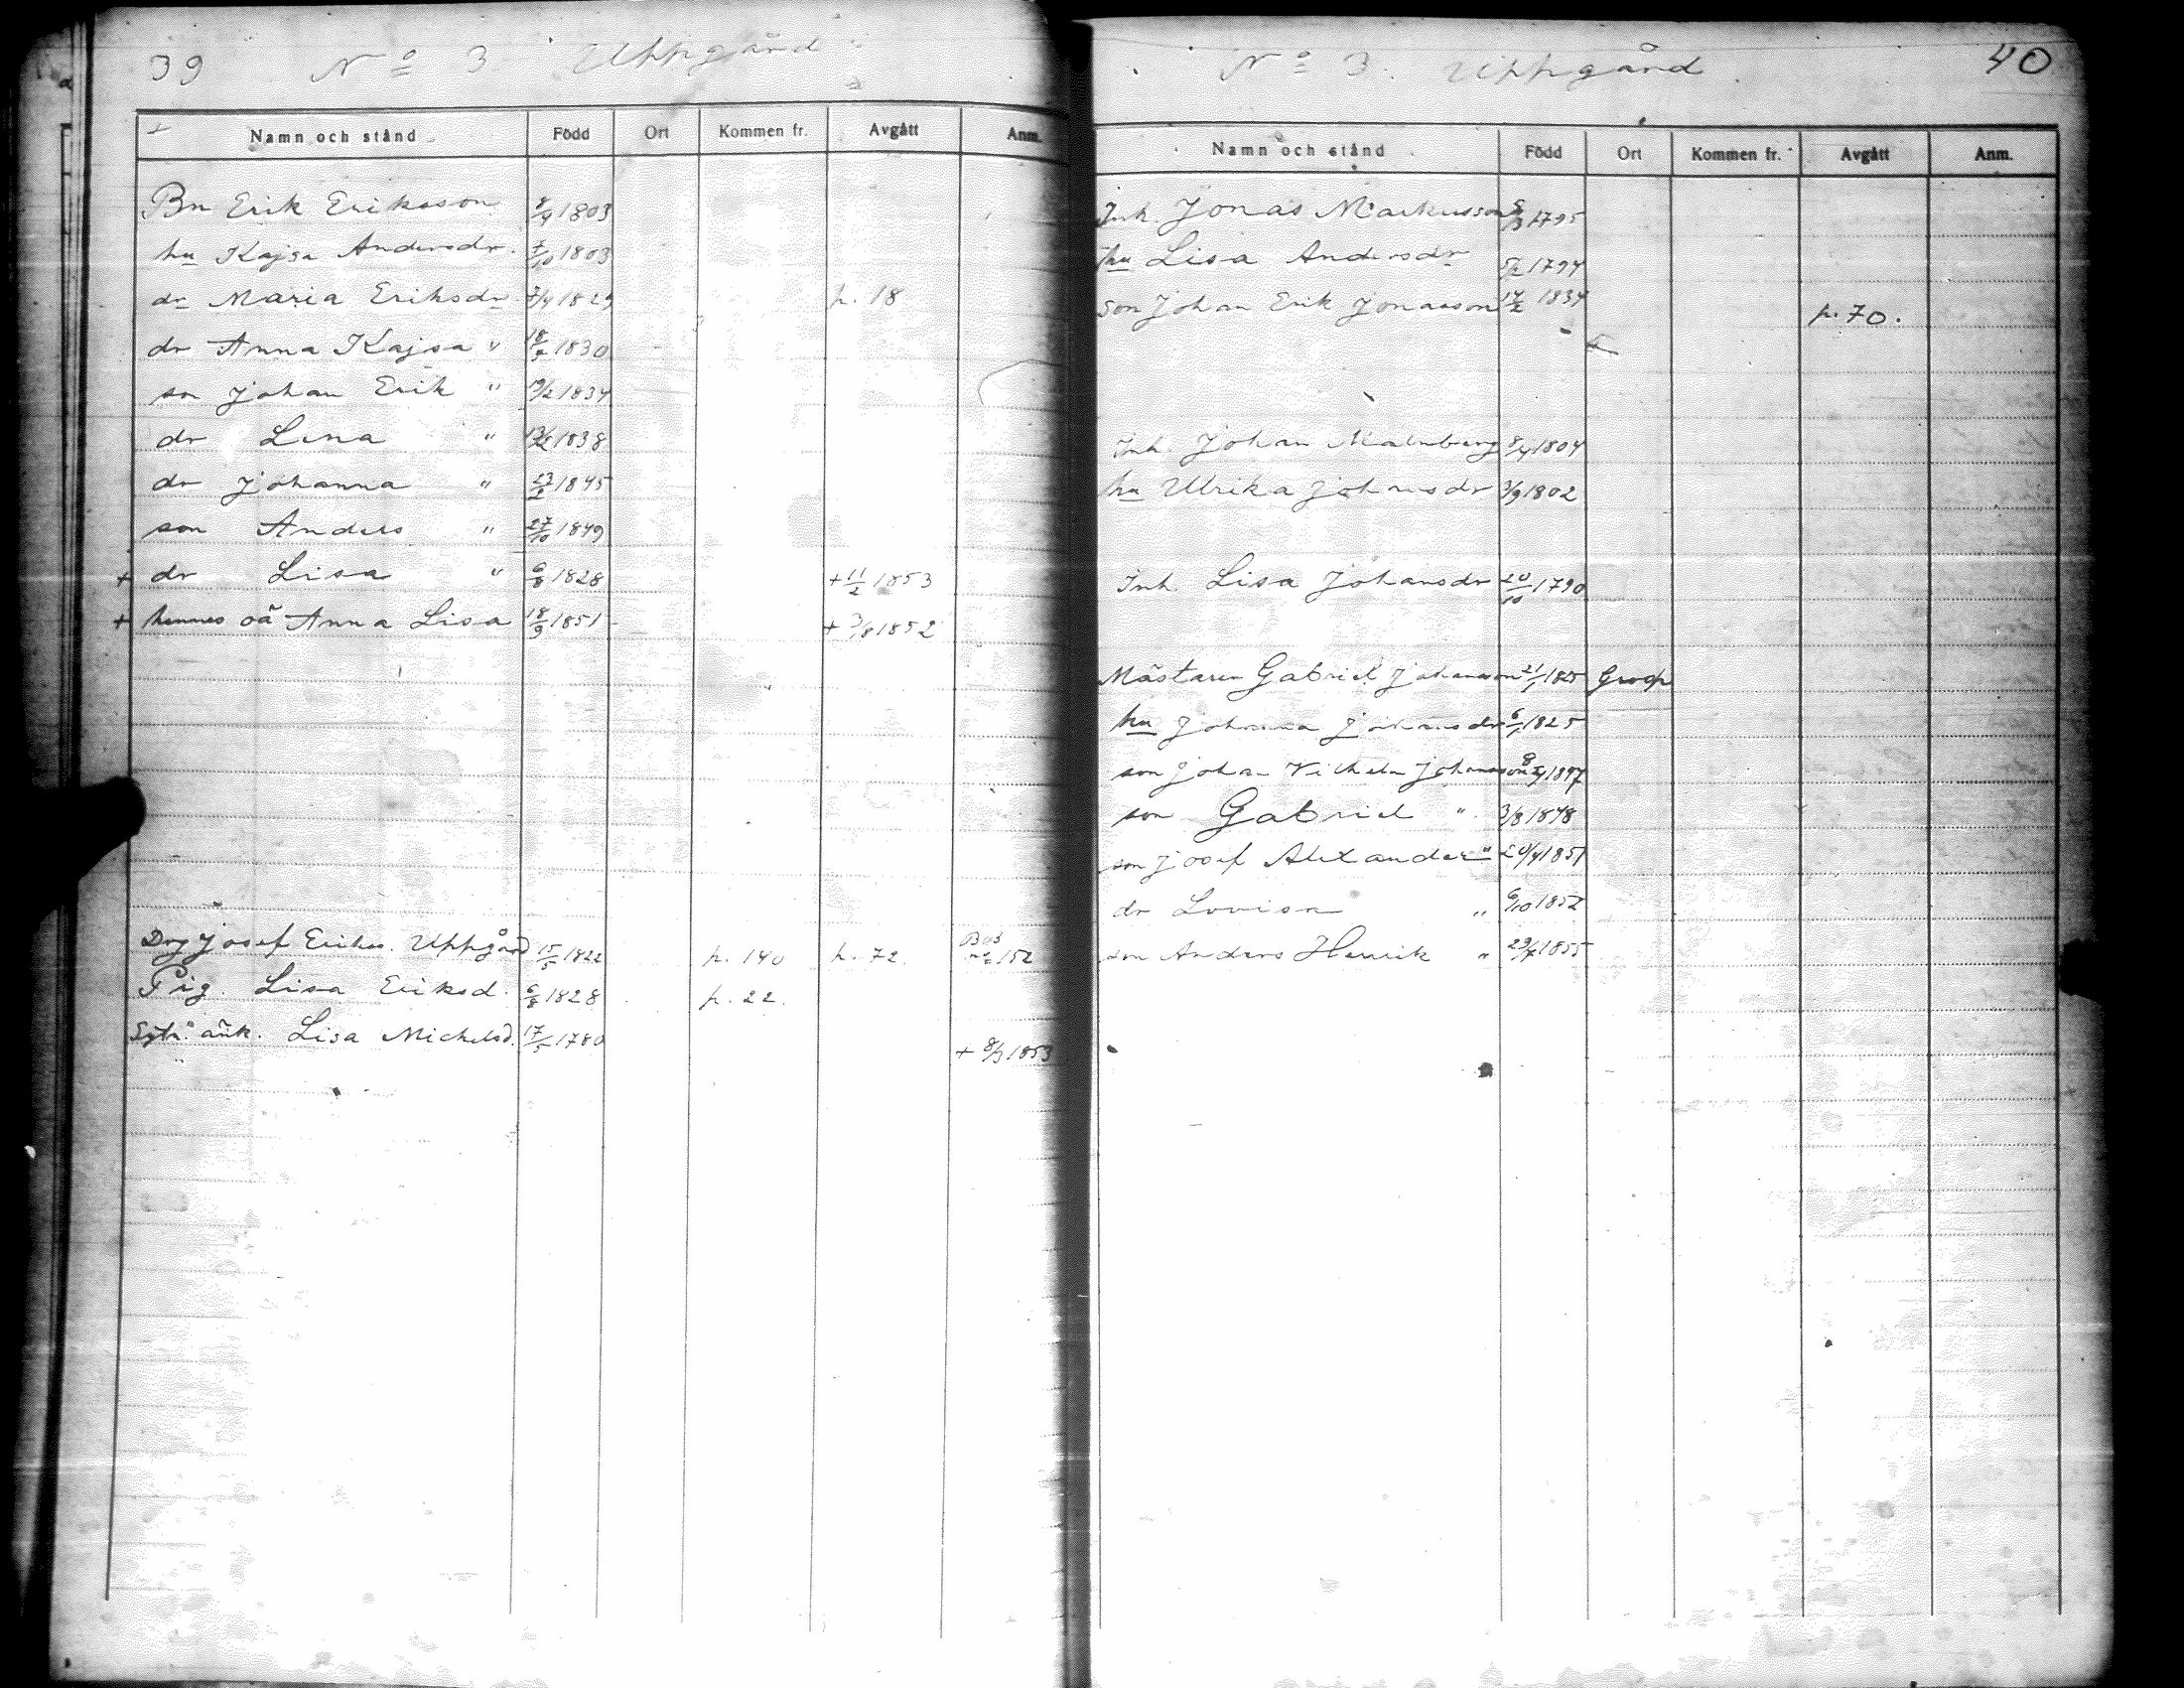 39 No 3 Uppgård
Namn och stånd Född Ort Kommen fr. Avgått Anm.
Bn Erik Eriksson /4 1803
hu Kajsa Andersdr. 7/10 1803
dr Maria Eriksdr 7/4 1829 p. 18
dr Anna Kajsa " 1830
son Johan Erik " 19/2 1834
dr Lena " 1838
dr Johanna " 23/2 1845
son Anders " 27/10 1849
+ dr Lisa " 6/8 1828 + 11/2 1853
+ hennes oä Anna Lisa 18/9 1851 + 3/8 1852
Drg Josef Eriks. Uppgård 15/5 1822 p. 140 p. 72 152
Pig. Lisa Eriksd. 6/8 1828 p. 22.
Sytn. änk. Lisa Michelsd. 17/5 1780 + 8/3 1853
No 3. Uppgård 40
Namn och stånd Född Ort Kommen fr. Avgått Anm.
Inh. Jonas Markusson 1795
hu Lisa Andersdr 5/2 1794
son Johan Erik Jonasson 17/2 1834 p. 70.
Inh. Johan Malmberg 8/4 1804
hu Ulrika Johansdr 3/9 1802
Inh. Lisa Johansdr 20/10 1790
Mästaren Gabriel Johansson 21/1 1825 Groop
hu Johanna Johansdr 6/1 1825
son Johan Vilhelm Johansson 1847
son Gabriel " 3/8 1848
son Josef Alexander " 20/4 1851
dr Lovisa " 6/10 1852
son Anders Henrik " 29/7 1855